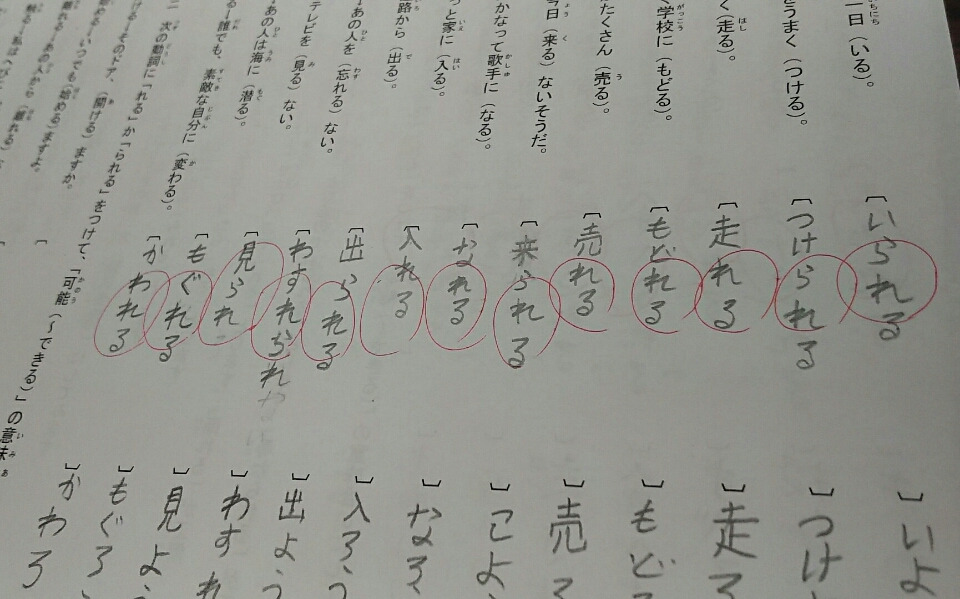 一日（いる）。 ［いられる ］いよ
とうまく（つける）。 ［つけられる ］つけ
く（走る）。 ［走れる ］走ろ
く学校に（もどる）。 ［もどれる ］もど
たくさん（売る）。 ［売れる ］売ろ
今日（来る）ないそうだ。 ［来られる ］こよ
かなって歌手に（なる）。 ［なれる ］なろ
っと家に（入る）。 ［入れる ］入ろう
路から（出る）。 ［出られる ］出よう
あの人を（忘れる）ない。 ［わすれられ ］わすれ
テレビを（見る）ない。 ［見られ ］見よ
あの人は海に（潜る）。 ［もぐれる ］もぐろ
誰でも、素敵な自分に（変わる）。 ［かわれる ］かわろ
一 次の動詞に「れる」か「られる」をつけて、「可能（～できる）」の意味
そのドア、（開ける）ますか。 ［
いつでも（始める）ますよ。 ［
あの人から（離れる）